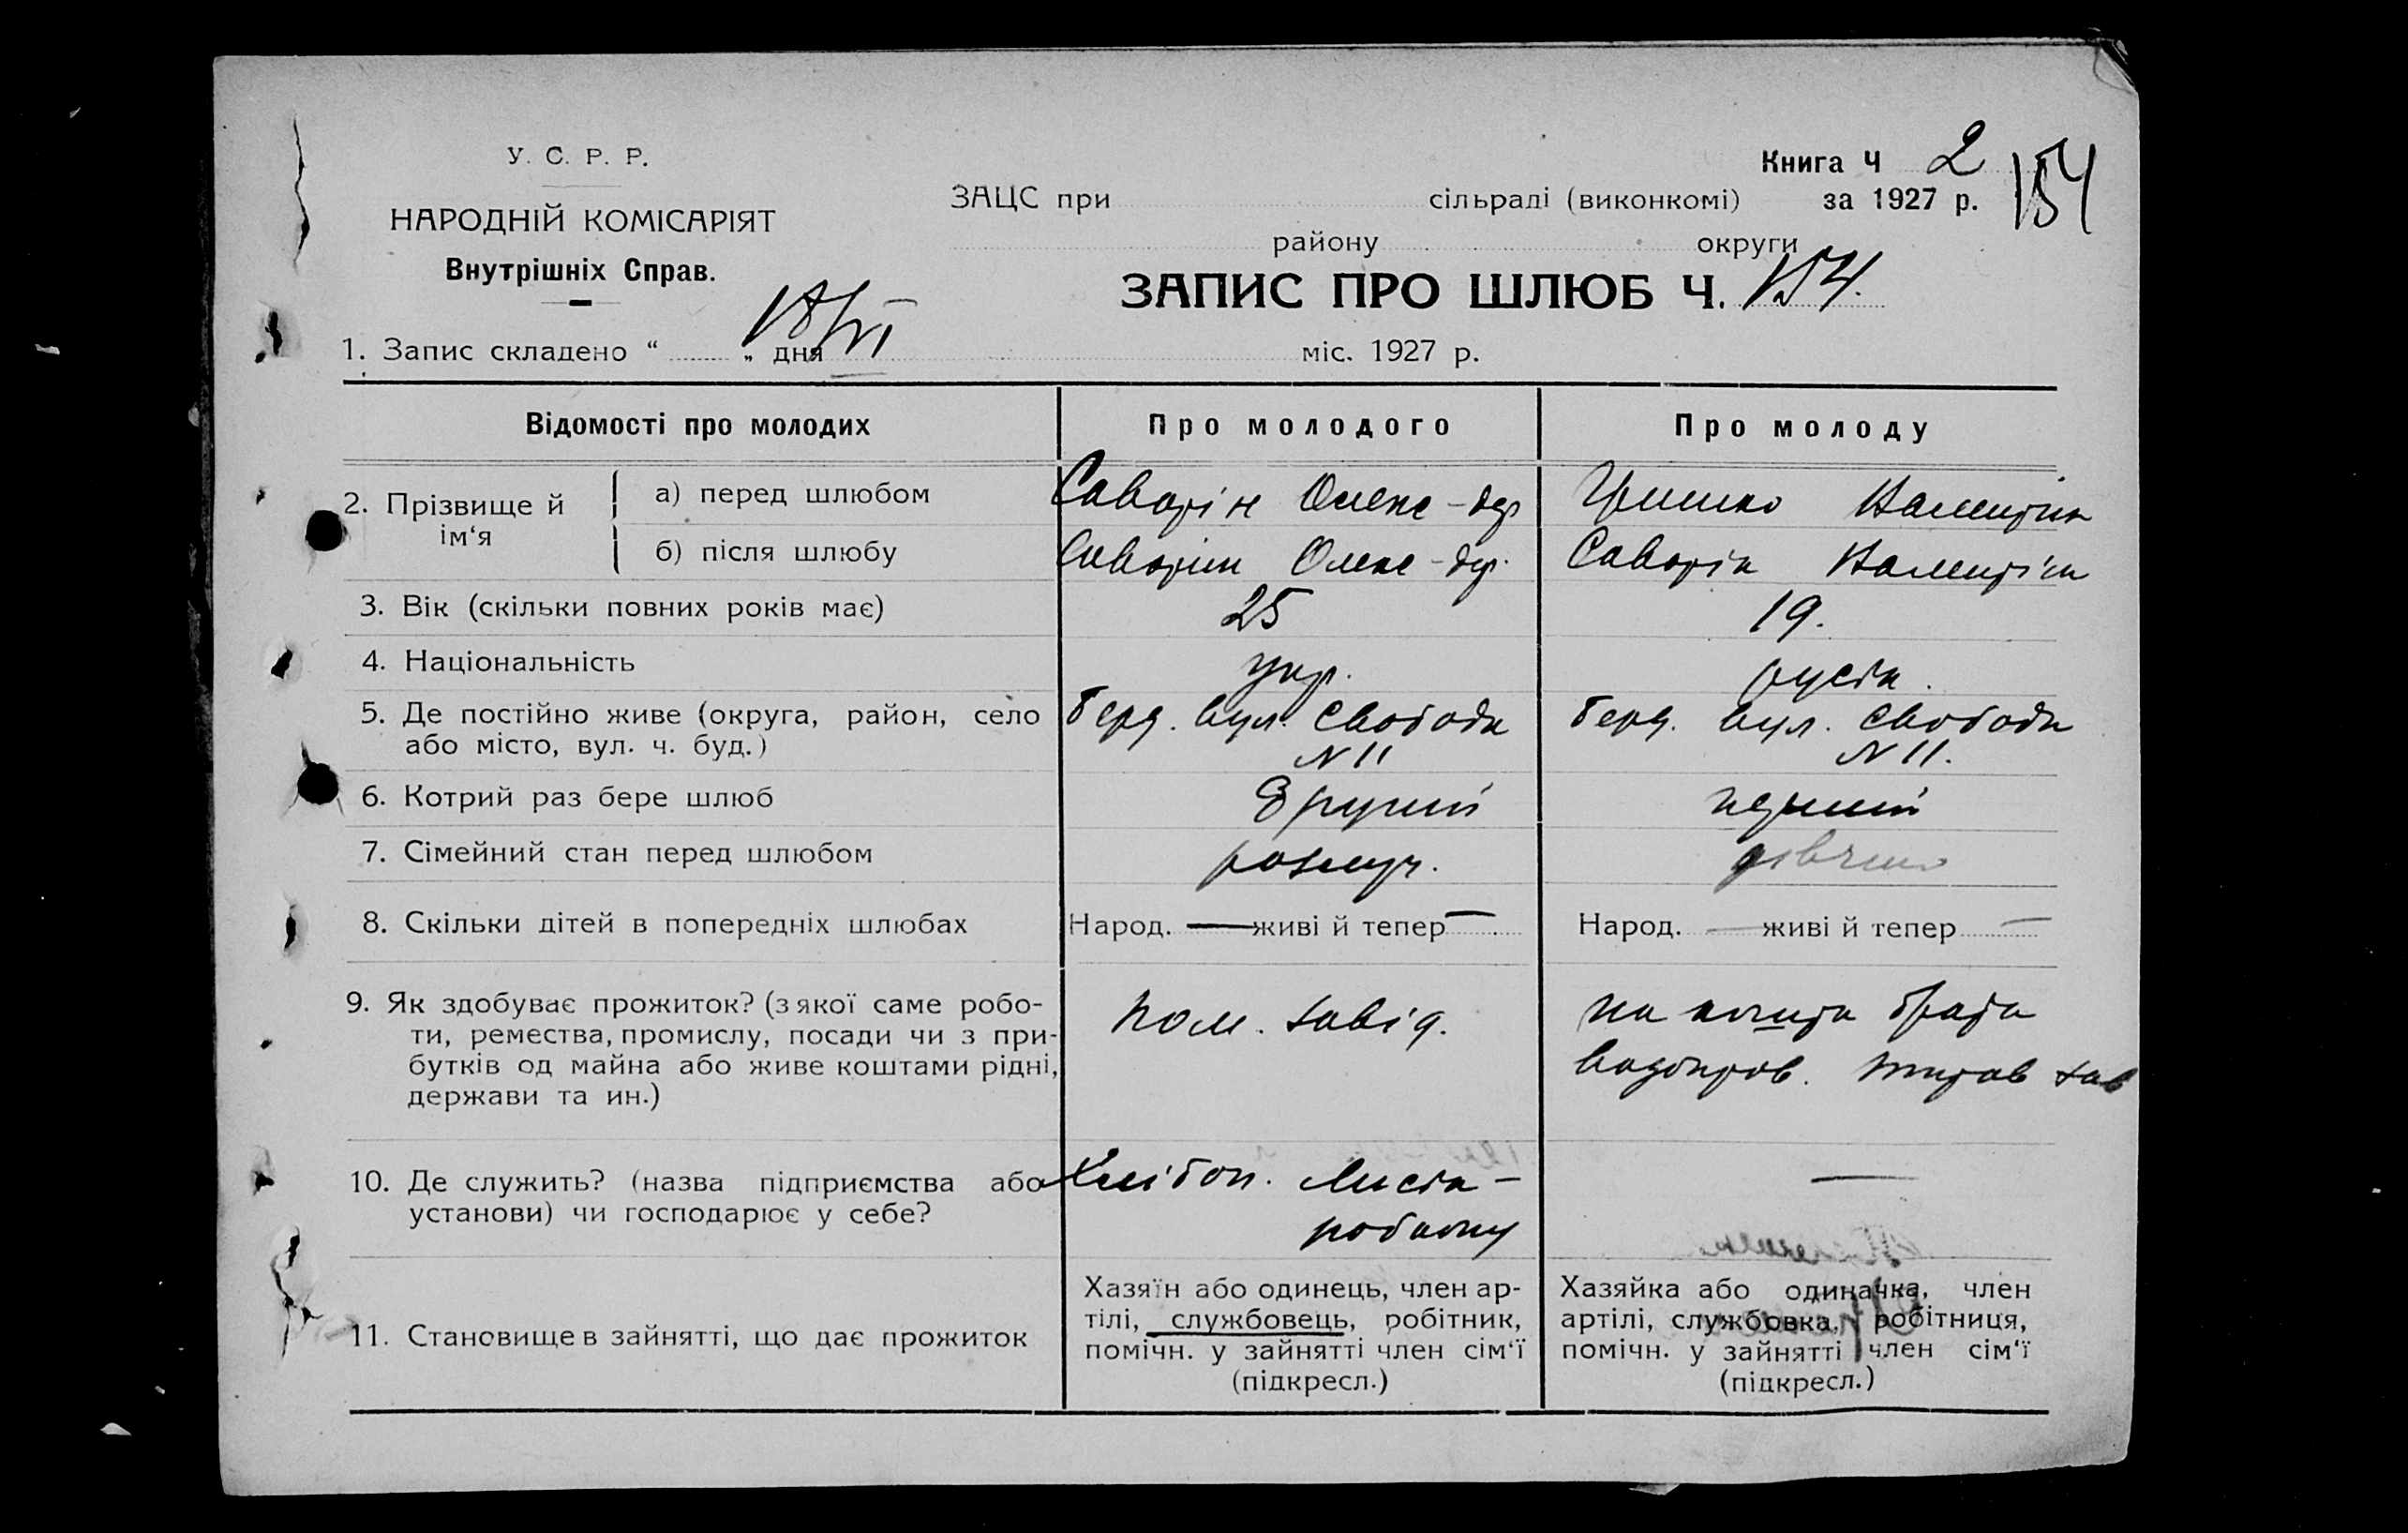 У. С. Р. Р.
НАРОДНІЙ КОМІСАРІЯТ
Внутрішніх Справ.
Книга Ч 2
154
ЗАЦС при сільраді (виконкомі) за 1927 р.
району округи
ЗАПИС ПРО ШЛЮБ Ч. 154.
1. Запис складено “ „ дня 18/VI міс. 1927 р.
Відомості про молодих Про молодого Про молоду
2. Прізвище й ім‘я
а) перед шлюбом Саворін Олекс-др Гришко
б) після шлюбу Саворин Олекс-др. Саворін
3. Вік (скільки повних років має) 25 19.
4. Національність укр. русск.
5. Де постійно живе (округа, район, село Берд. вул. Свободи Берд. вул. Свободи
або місто, вул. ч. буд.) N 11 N 11.
6. Котрий раз бере шлюб Другий перший
7. Сімейний стан перед шлюбом розлуч. дівчина
8. Скільки дітей в попередніх шлюбах Народ. — живі й тепер — Народ. — живі й тепер —
9. Як здобуває прожиток? (з якої саме робо-
ти, ремества, промислу, посади чи з при-
бутків од майна або живе коштами рідні,
держави та ин.)
Пом. завід.
на кошти брата
10. Де служить? (назва підприємства або
установи) чи господарює у себе?
—
11. Становище в зайнятті, що дає прожиток
Хазяїн або одинець, член ар-
тілі, службовець, робітник,
помічн. у зайнятті член сім‘ї
(підкресл.)
Хазяйка або одиначка, член
артілі, службовка, робітниця,
помічн. у зайнятті член сім‘ї
(підкресл.)